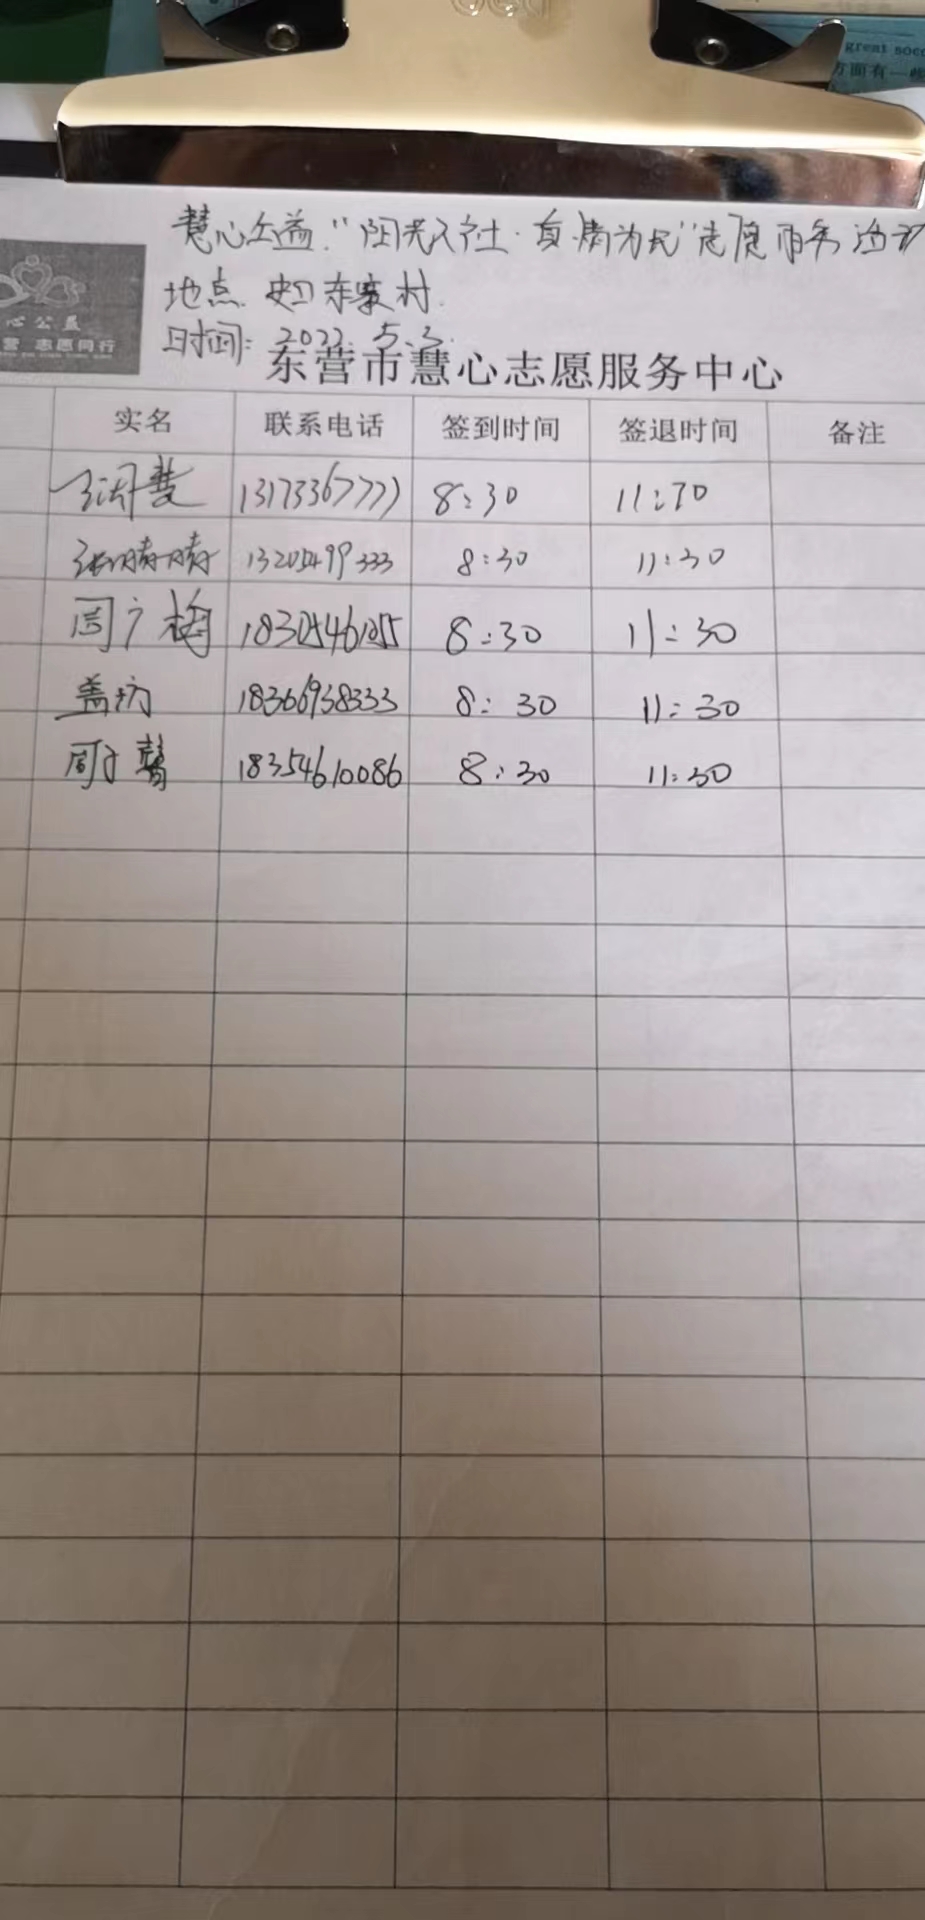 great socc
方面有一些
慧心公益“阳光入社·真情为民”志愿服务活动
地点 史口东家村
心公益
营 志愿同行
时间：2022.5.3.
东营市慧心志愿服务中心
实名 联系电话 签到时间 签退时间 备注
13173367777 8:30 11:30
张晴晴 13205499333 8:30 11:30
周广梅 18305461055 8:30 11:30
盖 18366938333 8:30 11:30
周子馨 18354610086 8:30 11:30